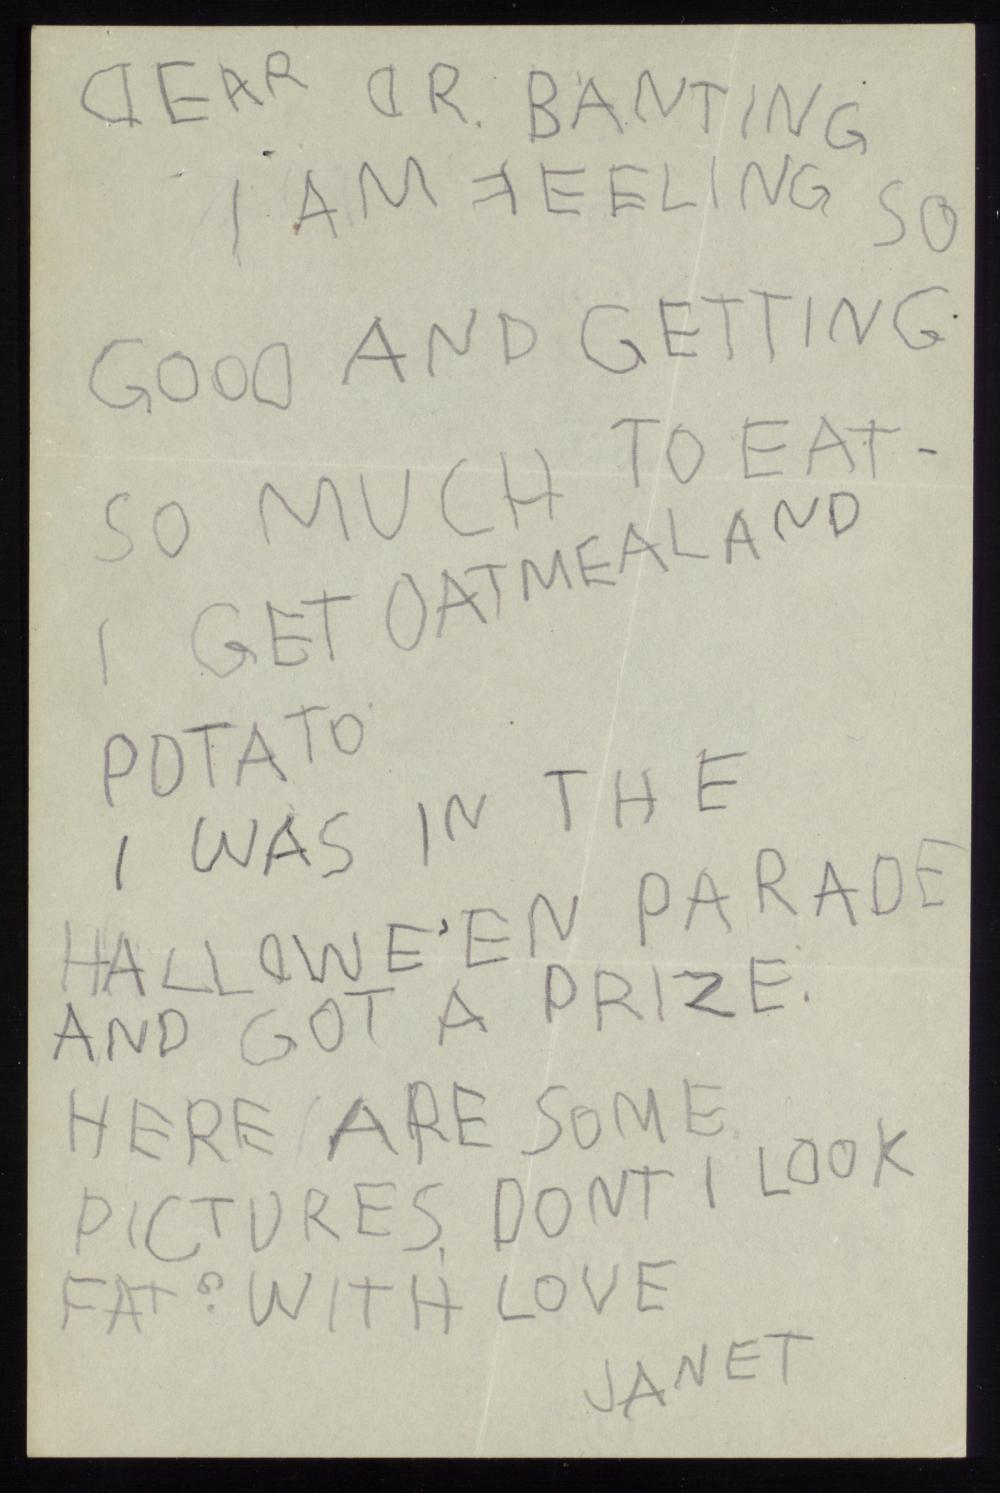 DEAR DR. BANTING
I AM FEELING SO
GOOD AND GETTING
SO MUCH TO EAT-
I GET OATMEAL AND
POTATO
I WAS IN THE
HALLOWE'EN PARADE
AND GOT A PRIZE.
HERE ARE SOME
PICTURES, DONT I LOOK
FAT? WITH LOVE
JANET